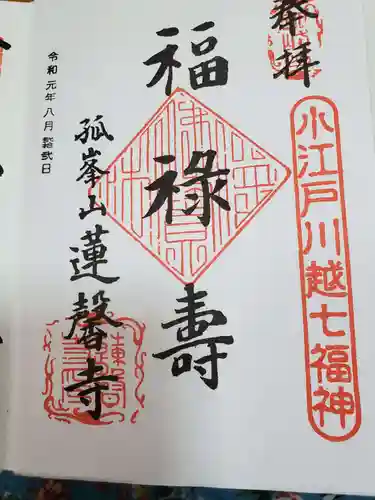 奉拝
小江戸川越七福神
福禄寿
孤峯山蓮馨寺
令和元年八月拾弐日